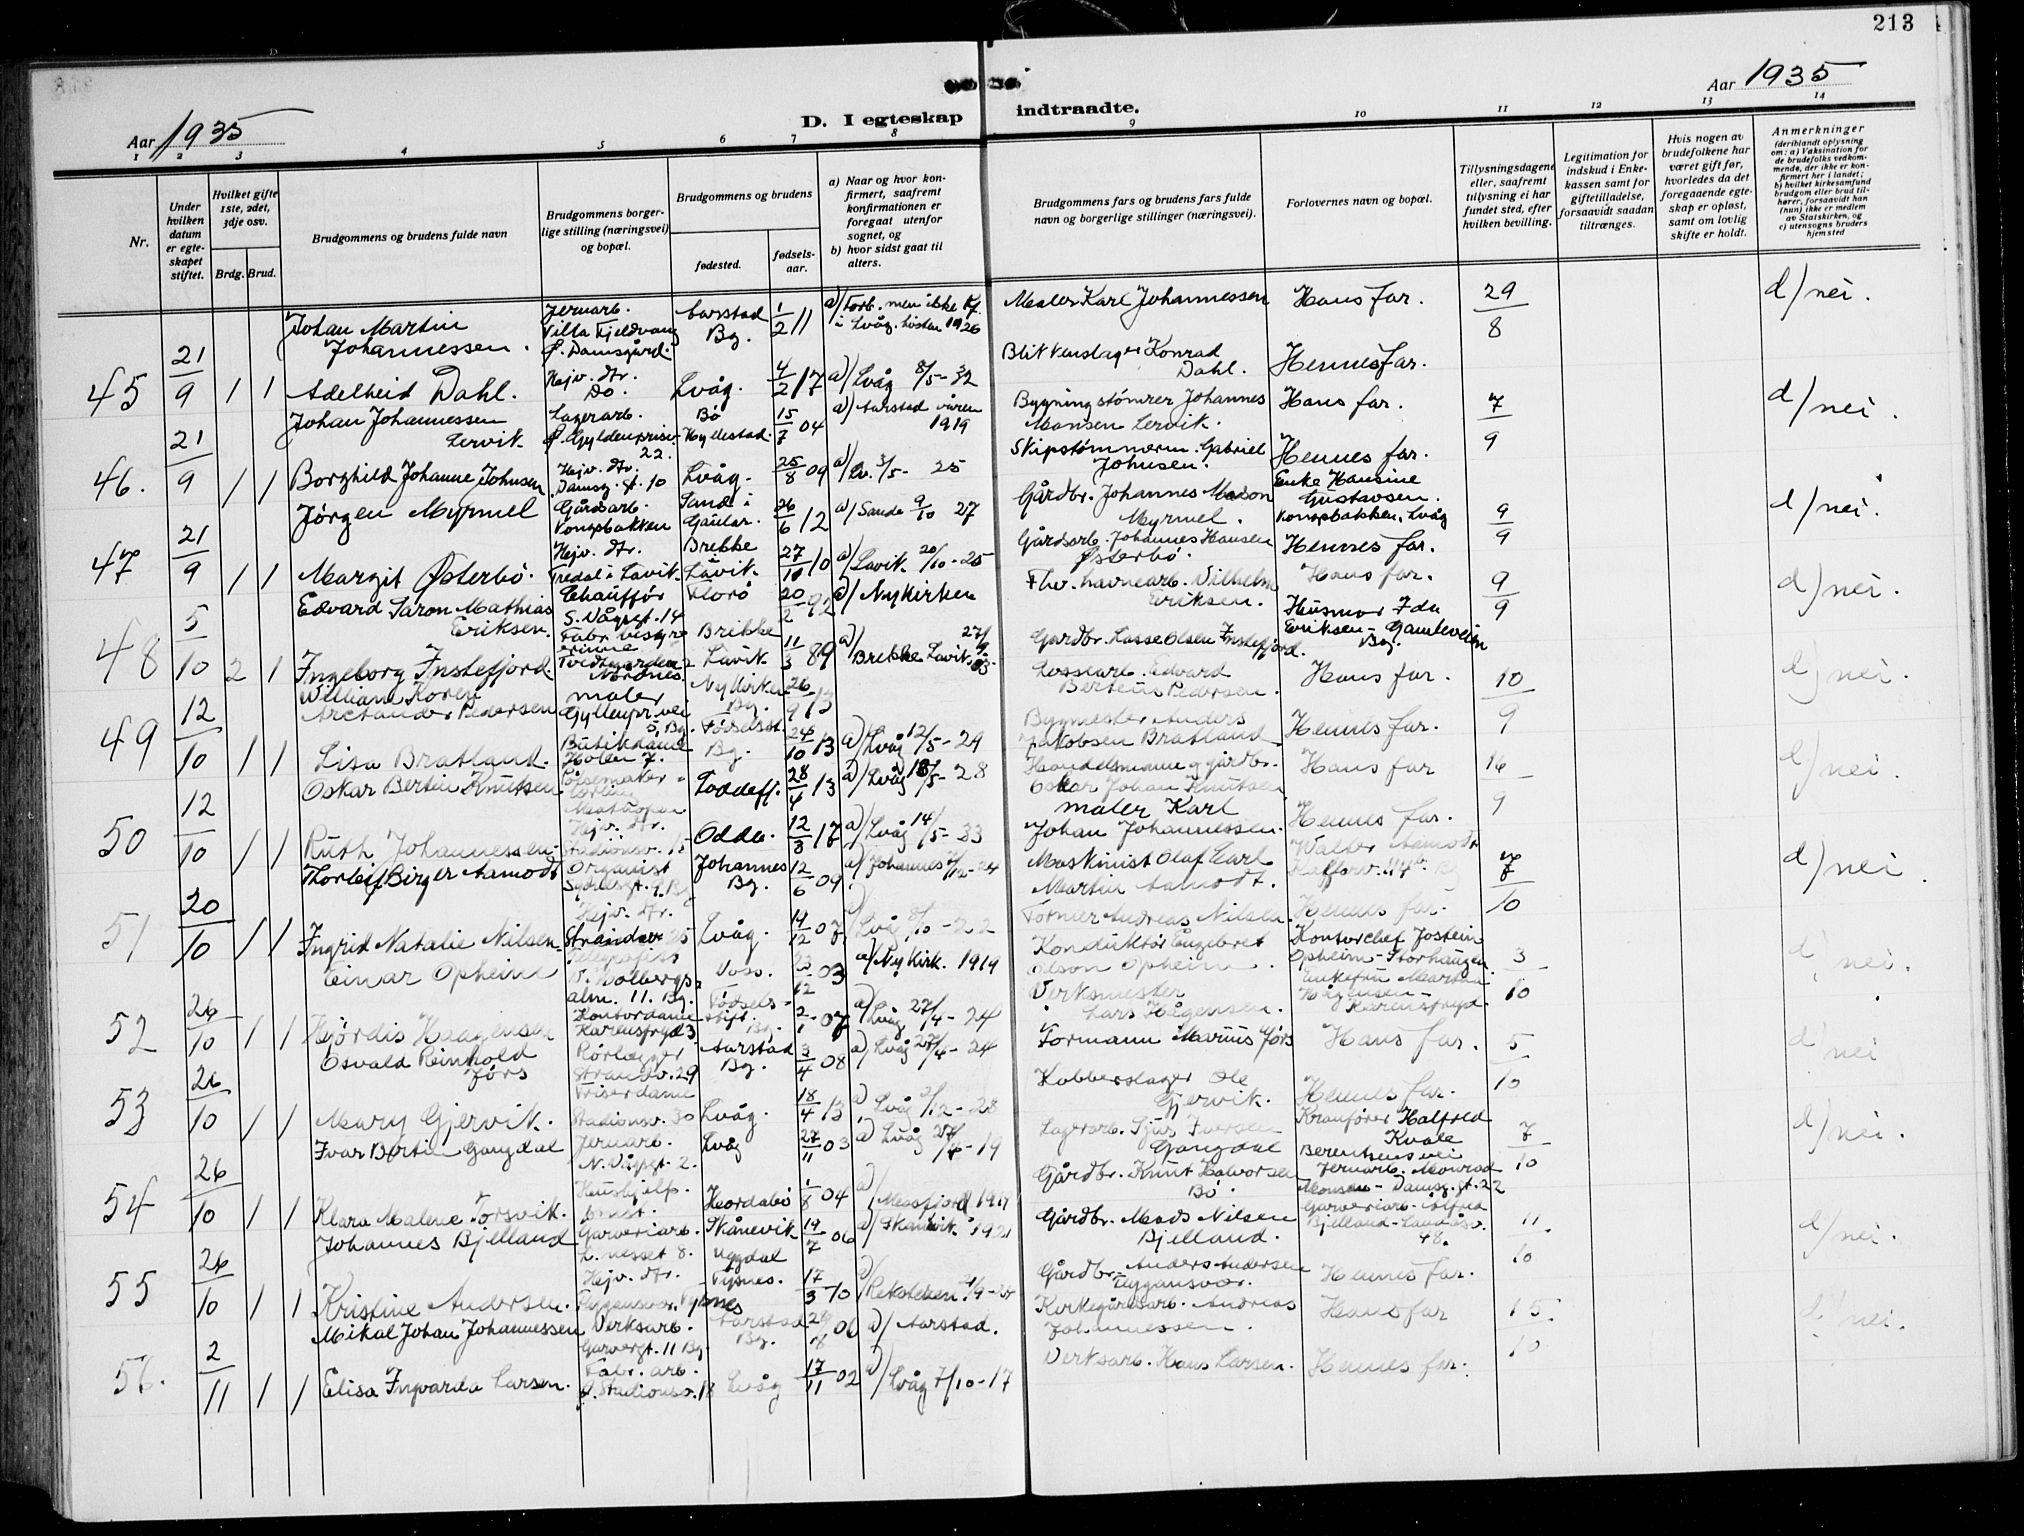 213
Aar 1935
D. I egteskap indtraadte.
Aar 1935
1 2 3 4 5 6 7 8 9 10 11 12 13 14
Nr.
Under hvilken datum er egteskapet stiftet.
Hvilket gifte 1ste, 2det, 3dje osv.
Brdg. Brud.
Brudgommens og brudens fulde navn
Brudgommens borgerlige stilling (næringsvei) og bopæl.
Brudgommens og brudens
fødested.
fødselsaar.
a) Naar og hvor konfirmert, saafremt konfirmationen er foregaat utenfor sognet, og
b) hvor sidst gaat til alters.
Brudgommens fars og brudens fars fulde navn og borgerlige stillinger (næringsvei).
Forlovernes navn og bopæl.
Tillysningsdagene eller, saafremt tillysning ei har fundet sted, efter hvilken bevilling.
Legitimation for indskud i Enkekassen samt for giftetilladelse, forsaavidt saadan tiltrænges.
Hvis nogen av brudefolkene har været gift før, hvorledes da det foregaaende egteskap er opløst, samt om lovlig skifte er holdt.
Anmerkninger (deriblandt oplysning om: a) Vaksination for de brudefolks vedkommende, der ikke er konfirmert her i landet; b) hvilket kirkesamfund brudgom eller brud tilhører, forsaavidt han (hun) ikke er medlem av Statskirken, og c) utensogns bruders hjemsted
45 21/9 1 1
Johan Martin Johannessen. Jernarb. Villa Fjeldvang Ø. Damsgård. Aarstad Bg. 1/2 11 Maler Karl Johannessen Hans far. 29/8 d/ nei.
Adelheid Dahl. Hejv. dtr. Do. Lvåg. 4/2 17 a) Lvåg 8/5-32 Blikkenslager Konrad Dahl. Hennes far.
46. 21/9 1 1
Johan Johannessen Lervik. Lagerarb. Bø Hyllestad. 15/7 04 a) Aarstad våren 1919 Bygningstømrer Johannes Monsen Lervik. Hans far. 7/9 d/ nei.
Borghild Johanne Johnsen Hejv. dtr. Damsg. gt. 10 Lvåg. 25/8 09 a) Lv. 3/5-25 Skipstømmerm. Gabriel Johnsen. Hennes far.
47 21/9 1 1
Jørgen Myrmel Gårdsarb. Sande i Gaular. 26/6 12 a) Sande 9/10 27 Gårdbr. Johannes Myrmel. Enke Hansine Gustavsen. Lvåg 9/9 d/ nei.
Margit Østerbø. Hejv. dtr. Tredal i Lavik. Brekke Lavik. 27/10 a) Lavik 20/10-25 Gårdsarb. Johannes Hansen Østerbø. Hennes far.
48 5/10 2 1
Edvard Saron Mathias Eriksen. Chauffør S. Vågsgt. 14 Florø 20/2 92 a) Nykirken Fhv. havnearb. Vilhelm Eriksen. Hans far. 9/9 d/ nei.
Ingeborg Instefjord. Nordnes Brekke Lavik 11/3 89 a) Brekke Lavik Gardbr. Lasse Olsen Instefjord. Husmor Ida Eriksen - Gamleveien Bg.
49 12/10 1 1
William Koren Arctander Pedersen maler Nykirken Bg. 26/9 13 Lossearb. Edvard Berteus Pedersen. Hans far. 10/9 d/ nei.
Lisa Bratland. Butikdame Holen 7. Fødselsst. Bg. 24/10 13 a) Lvåg 12/5-29 Bygmester Anders Jakobsen Bratland Hennes far.
50 12/10 1 1
Oskar Bertin Knutsen Pølsemaker Loddefj. 28/4 13 a) Lvåg 18/5-28 Handelsmann og gårdbr. Oskar Johan Knutsen Hans far 16/9 d/ nei.
Ruth Johannessen. Hejv. dtr. Stadionsv. 15 Odda. 12/3 17 a) Lvåg 14/5-33 maler Karl Johan Johannessen. Hennes far.
51 20/10 1 1
Thorleif Birger Aamodt Organist Johannes Bg. 12/6 09 a) Johannes Maskinist Olaf Carl Martin Aamodt. Walder Aamodt 7/10 d/ nei.
Ingrid Natalie Nilsen Hejv. dtr. Lvåg. 14/12 07 Former Andreas Nilsen. Hennes far.
52 26/10 1 1
Einar Opheim Voss. 23/12 03 a) Nykirk. 1919 Konduktør Engebret Olson Opheim. Kontorchef Jostein Opheim - Storhaugen 3/10 d/ nei.
Hjørdis Haagensen Kontordame Fødselsstift. Bg. 2/1 07 a) Lvåg 27/4-24 Verksmester Lars Hågensen.
53 26/10 1 1
Osvald Reinhold Jørs Rørlegger Strandv. 29 Aarstad Bg. 3/4 08 a) Lvåg 27/4-24 Formann Marius Jørs Hans far. 5/10 d/ nei
Mary Gjervik. Friserdame Stadionsv. 30 Lvåg. 18/4 13 a) Lvåg -28 Kobberslager Ole Gjervik. Hennes far.
54 26/10 1 1
Ivar Bertin Gangdal Jernarb. N. Vågsgt. 2. Lvåg 27/11 03 a) Lvåg 27/4-19 Lagerarb. Sjur Iversen Gangdal Kranfører Halfred Kvale Berentsens vei 7/10 d/ nei.
Klara Malene Torsvik. Hushjelp. Hordabø 1/8 04 a) Gårdbr. Knut Halvorsen Bø. Jernarb. Monrad Monsen - Damsg. gt. 22
55 26/10 1 1
Johannes Bjelland Garveriarb. L. nesset 8. Skånevik 14/7 06 a) Skånevik. 1921 Gårdbr. Mads Nilsen Bjelland. Garveriarb. Alfred Bjelland - 48. 11/10 d/ nei.
Kristine Andersen. Hejv. dtr. Uggdal Tysnes. 17/3 10 Gårdbr. Anders Andersen Flygansvær. Hennes far.
56. 2/11 1 1
Mikal Johan Johannessen Verksarb. Aarstad Bg. 06 a) Aarstad. Kirkegårdsarb. Andreas Johannessen. Hans far 15/10 d/ nei.
Elisa Ingvarda Larsen. Fabr. arb. Stadionsv. 18 Lvåg 17/11 02 a) Lvåg 7/10-17 Verksarb. Hans Larsen. Hennes far.